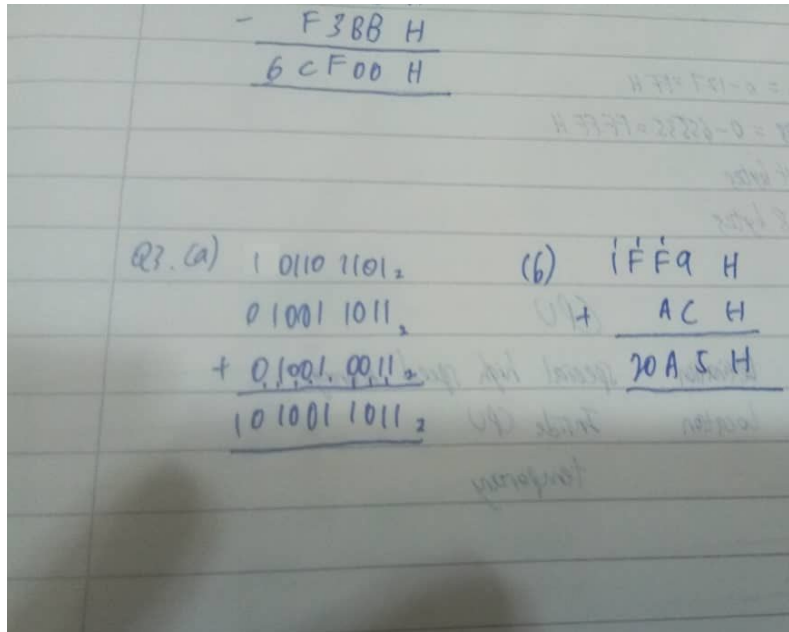 - F3BB H
6CF00 H
Q3. (a) 1 0110 1101₂
01001 1011₂
+ 01001 0011₂
101001 1011₂
(b) 1FF9 H
+ AC H
20A5 H